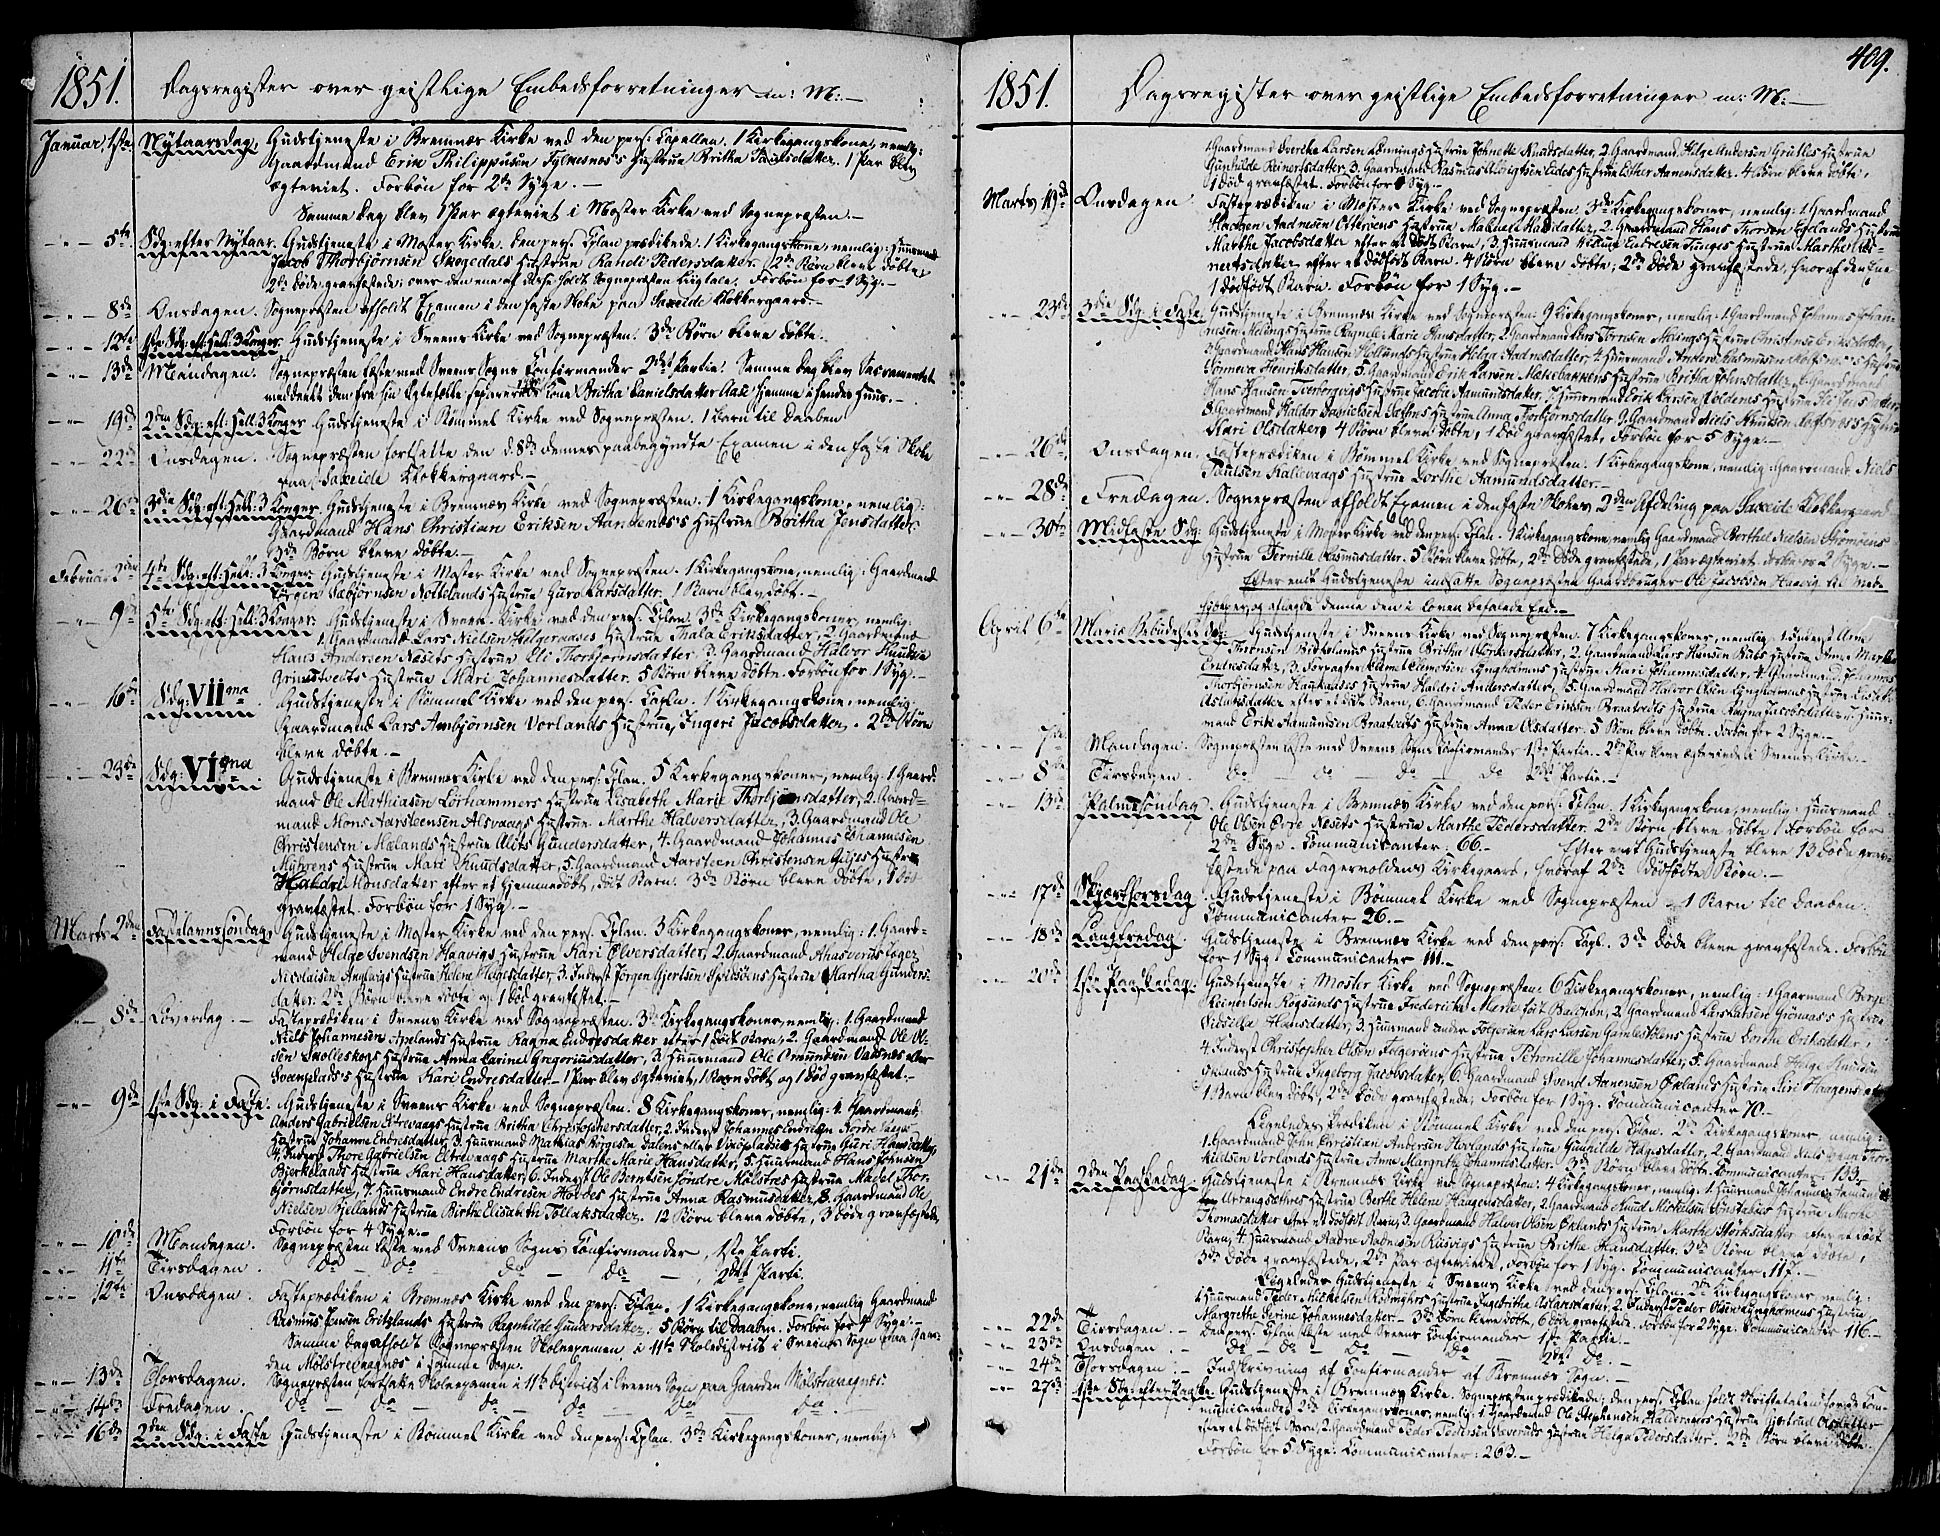 1851. Dagsregister over geistlige Embedsforretninger m: M:—
Januar 1ste Nytaarsdag. Gudstjeneste i Bremnæs Kirke ved den pers: Capellan. 1 Kirkegangskone, nemlig:
Gaardmand Erik Philippusen Fylmesnes's Hustrue Britha Paulsdatter. 1 Par blev
ægteviet. Forbøn for 2de Syge.—
Samme Dag blev 1 Par ægteviet i Moster Kirke ved Sognepræsten.—
—"— 5te Sdg: efter Nytaar. Gudstjeneste i Moster Kirke. Den pers: Cplan prædikede. 1 Kirkegangskone, nemlig: Huusmand
Jacob Thorbjørnsen Skogedals Hustrue Randi Pedersdatter. 2de Børn bleve døbte,
2de døde gravfæstede; over den ene af disse holdt Sognepræsten Liigtale. Forbøn for 1 Syg.—
—"— 8de Onsdagen. Sognepræsten afholdt Examen i den faste Skole paa Saxeide Klokkergaard.—
—"— 12te 1ste Sdg: eft: Hell: 3 Konger. Gudstjeneste i Sveens Kirke ved Sognepræsten. 3de Børn bleve døbte.—
—"— 13de Mandagen. Sognepræsten læste med Sveens Sogns Confirmander 2det Partie. Samme Dag blev Sacramentet
meddeelt den fra sin Ægtefælle separerede Kone Britha Danielsdatter Aase hjemme i hendes Huus.—
—"— 19de 2den Sdg: eft: Hell: 3 Konger. Gudstjeneste i Bømmel Kirke ved Sognepræsten. 1 Barn til Daaben.
—"— 22de Onsdagen. Sognepræsten fortsatte den d. 8de dennes paabegyndte Examen i den faste Skole
paa Saxeide Klokkergaard.—
—"— 26de 3die Sdg: eft: Hell: 3 Konger. Gudstjeneste i Bremnæs Kirke ved Sognepræsten. 1 Kirkegangskone, nemlig:
Gaardmand Hans Christian Eriksen Aandenes's Hustrue Britha Jensdatter.
3de Børn bleve døbte.—
Februar 2den 4de Sdg: eft: Hell: 3 Konger. Gudstjeneste i Moster Kirke ved Sognepræsten. 1 Kirkegangskone, nemlig: Gaardmand
Jørgen Sæbjørnsen Nottelands Hustrue Guro Larsdatter. 1 Barn blev døbt.—
—"— 9de 5te Sdg: eft: Hell: 3 Konger. Gudstjeneste i Sveens Kirke ved den pers: Cplan. 3de Kirkegangskoner, nemlig:
1. Gaardmand Lars Nielsen Helgeraases Hustrue Thala Eriksdatter, 2. Gaardmand
Hans Andersen Næsets Hustrue Eli Thorbjørnsdatter 3. Gaardmand Halvor Knudsen
Grindtvedts Hustrue Mari Johannesdatter. 5 Børn bleve døbte. Forbøn for 1 Syg.—
—"— 16de Sdg: VIIma. Gudstjeneste i Bømmel Kirke ved den pers: Caplan. 1 Kirkegangskone, nemlig:
Gaardmand Lars Ambjørnsen Vorlands Hustrue, Ingeri Jacobsdatter. 2de Børn
bleve døbte.—
—"— 23de Sdg: VIgma. Gudstjeneste i Bremnæs Kirke ved den pers: Cplan. 5 Kirkegangskoner, nemlig: 1. Gaard-
mand Ole Mathiasen Lørhammers Hustrue Lisabeth Marie Thorbjørnsdatter, 2. Gaard-
mand Mons Aarsteensen Alsvaags Hustrue Marthe Halversdatter, 3. Gaardmand Ole
Christensen Mælands Hustrue Alits Gundersdatter, 4. Gaardmand Johannes Johannesen
Myhrens Hustrue Mari Knudsdatter, 5. Gaardmand Aarsteen Christensen Giljes Hustrue
Haldri Monsdatter efter et hjemmedøbt, dødt Barn. 3de Børn bleve døbte, 1 Død
gravfæstet. Forbøn for 1 Syg.—
Marts 2den Fastelavnssøndag. Gudstjeneste i Moster Kirke ved den pers: Cplan. 3 Kirkegangskoner, nemlig: 1. Gaard-
mand Helge Svendsen Haavigs Hustrue Kari Elversdatter, 2. Gaardmand Ahasverus Løger
Nicolaisen Hustrue Helene Helgesdatter, 3. Inderst Jørgen Gjertsen Spidsøens Hustrue Martha Gunders-
datter. 2de Børn bleve døbte og 1 Død gravfæstet.—
—"— 8de Løverdag.— Fasteprædiken i Sveens Kirke ved Sognepræsten. 3de Kirkegangskoner, nemlig: 1. Gaardmand
Niels Johannesen Tvelands Hustrue Ragna Endresdatter efter 1 dødt Barn, 2. Gaardmand Ole Ol-
sen Skolleskogs Hustrue Anna Carine Gregoriusdatter, 3. Huusmand Ole Omundsen Vadsnæs eller
Sveenplads's Hustrue Kari Endresdatter.— 1 Par blev ægteviet, 1 Barn døbt og 1 Død gravfæstet.—
—"— 9de 1ste Sdg: i Faste. Gudstjeneste i Sveens Kirke ved Sognepræsten. 8 Kirkegangskoner, nemlig: 1. Gaardmand
Anders Gabrielsen Eltrevaags Hustrue Britha Christophersdatter, 2. Inderst Johannes Endresen Nordre Vaages
Hustrue Johanna Endresdatter, 3. Huusmand Mathias Børgesen Dalens eller Hustrue Guri Hansdatter,
4. Inderst Thore Gabrielsen Eltrevaags Hustrue Marthe Marie Hansdatter, 5. Huusmand Hans Johnsen
Bjerkelands Hustrue Kari Hansdatter, 6. Inderst Ole Berntsen Søndre Mølstres Hustrue Madel Thor-
bjørnsdatter, 7. Huusmand Endre Endresen Hovdes Hustrue Anna Rasmusdatter, 8. Gaardmand Ole
Nielsen Kjellands Hustrue Birthe Elisabeth Tollaksdatter. 12 Børn bleve døbte, 3 Døde gravfæstede,
Forbøn for 4 Syge.—
—"— 10de Mandagen. Sognepræsten læste med Sveens Sogns Confirmander, 1ste Parti.
—"— 11te Tirsdagen. do — do do — do — 2det Parti.
—"— 12te Onsdagen. Fasteprædiken i Bremnæs Kirke ved den pers: Cplan. 1 Kirkegangskone, nemlig Gaardmand
Rasmus Jensen Eritzlands Hustrue Ragnhilde Gundersdatter. 5 Børn til Daaben. Forbøn for 4 Syge.—
Samme Dag afholdt Sognepræsten Skoleexamen i 11te Skoledistrict i Sveens Sogn paa Gaar-
den Mølstrevaagnes i samme Sogn.
—"— 13de Thorsdagen. Sognepræsten fortsatte Skoleexamen i 11te District i Sveens Sogn paa Gaarden Mølstrevaagnes
—"— 14de Fredagen. do — do — do — do — do — do.
—"— 16de 2den Sdg: i Faste Gudstjeneste i Bømmel Kirke ved den pers: Cplan. 3de Kirkegangskoner, nemlig:
409.
1851. Dagsregister over geistlige Embedsforretninger m: M:—
1. Gaardmand Larsen Hustrue Johnette Knudsdatter, 2. Gaardmand Helge Andersen Grutles Hustrue
Gunhilde Reinertsdatter, 3. Gaardmand Rasmus Eides Hustrue Esther Aamundsdatter. 4 Børn bleve døbte,
1 Død gravfæstet. Forbøn for 1 Syg.—
Marts 19de Onsdagen. Fasteprædiken i Moster Kirke ved Sognepræsten. 3de Kirkegangskoner, nemlig: 1. Gaardmand
Haagen Aadnesen Otterøens Hustrue Mahnele 2. Gaardmand Hans Thorsen Eqlands Hustrue
Marthe Jacobsdatter efter et dødt Barn, 3. Huusmand Endresen Tunges Hustrue Marthe
nertsdatter efter et dødfødt Barn. 4 Børn bleve døbte; 2de Døde gravfæstede, hvoraf den Ene
1 dødfødt Barn. Forbøn for 1 Syg.—
—"— 23de 3die Sdg: i Faste. Gudstjeneste i Bremnæs Kirke ved Sognepræsten. 9 Kirkegangskoner, nemlig: 1. Gaardmand Johannes Johan-
nesen Melings Hustrue Ragnele Marie Hansdatter, 2. Gaardmand Lars Tørrisen Melings Hustrue Christense Eriksdatter,
3. Gaardmand Hans Hansen Hollunds Hustrue Helga Aadnesdatter, 4. Huusmand Anders Rasmusen Hustrue
Synneva Henriksdatter, 5. Gaardmand Erik Larsen Mælsbakkens Hustrue Britha Johnsdatter, 6. Gaardmand
Hans Hansen Hustrue Jacobie Aamundsdatter, 7. Huusmand Erik Larsen Hustrue
8. Gaardmand Haldor Davidsen Hustrue Anna Thorbjørnsdatter 9. Gaardmand Niels Knudsen Hustrue
Kari Olsdatter, 4 Børn bleve døbte, 1 Død gravfæstet, Forbøn for 5 Syge.—
—"— 26de Onsdagen. Fasteprædiken i Bømmel Kirke ved Sognepræsten. 1 Kirkegangskone, nemlig: Gaardmand Niels
Paulsen Kallevaags Hustrue Dorthe Aamundsdatter.—
—"— 28de Fredagen. Sognepræsten afholdt Examen i den faste Skoles 2den Afdeling paa Saxeide Klokkergaard
—"— 30te Midfaste Sdg: Gudstjeneste i Moster Kirke ved den pers: Cplan. 1 Kirkegangskone, nemlig Gaardmand Berthel Nielsen
Hustrue Pernille Rasmusdatter. 5 Børn bleve døbte, 2de Døde gravfæstede, 1 Par ægteviet. Forbøn for 2 Syge.—
Efter endt Gudstjeneste indsatte Sognepræsten Gaardbruger Ole Jacobsen Haavig til Med-
hjelper, og aflagde denne den i Loven befalede Eed.—
April 6te Mariæ Bebudelses Dag. Gudstjeneste i Sveens Kirke ved Sognepræsten. 7 Kirkegangskoner, nemlig: 1. Inderst Arne
Thormsen Hustrue Britha 2. Gaardmand Lars Hansen Hustrue Anna Martha
Endresdatter, 3. Clemetsen Lyngholmens Hustrue Mari Johannesdatter, 4. Gaardmand Johannes
Thorbjørnsen Haukaases Hustrue Haldri Andersdatter, 5. Gaardmand Halvor Olsen Lyngholmens Hustrue
Aslaksdatter efter et dødt Barn, 6. Gaardmand Peder Eriksen Braatvedts Hustrue Ragna Jacobsdatter, 7. Huus-
mand Erik Aamundsen Braatvedts Hustrue Anna Olsdatter. 5 Børn bleve døbte. Forbøn for 2 Syge.—
—"— 7de Mandagen. Sognepræsten læste med Sveens Sogns Confirmander 1ste Partie. 2de Par bleve ægteviede i Sveens Kirke.—
—"— 8de Tirsdagen. do — do — do — do 2det Partie.—
—"— 13de Palmesøndag. Gudstjeneste i Bremnæs Kirke ved den pers: Cplan. 1 Kirkegangskone, nemlig: Huusmand
Ole Olsen Eidenæsets Hustrue Marthe Pedersdatter. 2de Børn bleve døbte. Forbøn for
2de Syge. Communicanter: 66.— Efter endt Gudstjeneste bleve 13 Døde grav-
fæstede paa Fagervoldens Kirkegaard, hvoraf 2de dødfødte Børn.—
—"— 17de Skjærthorsdag. Gudstjeneste i Bømmel Kirke ved Sognepræsten — 1 Barn til Daaben.
Communicanter 26.—
—"— 18de Langfredag. Gudstjeneste i Bremnæs Kirke ved den pers: Capl. 3de Døde bleve gravfæstede. Forbøn
for 1 Syg. Communicanter 111.—
—"— 20de 1ste Paaskedag. Gudstjeneste i Moster Kirke ved Sognepræsten. 6 Kirkegangskoner, nemlig: 1. Gaardmand
Reinertsen Røgsunds Hustrue Frederikke Marie født 2. Gaardmand Lars Larsen Hustrue
Hansdatter, 3. Huusmand Lars Larsen Gamlestølens Hustrue Dorthe Eriksdatter,
4. Inderst Christopher Olsen Folgerøens Hustrue Petronille Johannesdatter, 5. Gaardmand Helge Knudsen
Øklands Hustrue Ingeborg Jacobsdatter, 6. Gaardmand Svend Aanensen Øklands Hustrue Siri Haagensdatter
1 Barn blev døbt, 2de Døde gravfæstede, Forbøn for 1 Syg. Communicanter 70.—
Ligeledes Prædiken i Bømmel Kirke ved den pers: Cplan. 2de Kirkegangskoner, nemlig:
1. Gaardmand John Christian Andersen Hovlands Hustrue Gunhilde Helgesdatter, 2. Gaardmand Niels
Vorlands Hustrue Anne Margrethe Johannesdatter. 3de Børn bleve døbte. Communicanter 133.
—"— 21de 2den Paaskedag. Gudstjeneste i Bremnæs Kirke ved Sognepræsten. 4 Kirkegangskoner, nemlig: 1. Huusmand Johannes Aamunds
Hustrue Berthe Helene Haagensdatter, 2. Gaardmand Knud Mickelsen Hustrue Marthe
Thomasdatter efter et dødfødt Barn, 3. Gaardmand Halvor Olsen Øklands Hustrue Marthe Størksdatter efter et dødt
Barn, 4. Huusmand Aadne Aadnesen Risvigs Hustrue Brithe Hansdatter. 3de Børn bleve døbte,
3de Døde gravfæstede, 2de Par ægteviede, Forbøn for 1 Syg. Communicanter. 117.—
Ligeledes Gudstjeneste i Sveens Kirke ved den pers: Cplan. 2de Kirkegangskoner, nemlig:
1. Huusmand Peder Mickelsen Hustrue Ingebritha Aslaksdatter, 2. Inderst Peder Olsen Lyngholmens Hustrue
Margrethe Serine Johannesdatter.— 3de Børn bleve døbte, 6 Døde gravfæstede. Forbøn for 2 Syge. Communicanter 116—
—"— 22de Tirsdagen.— Den pers: Cplan læste med Sveens Confirmander 1ste Partie.—
—"— 23de Onsdagen.— do — do — do — do — 2det do.—
—"— 24de Thorsdagen.— Indskrivning af Confirmander af Bremnæs Sogn.—
—"— 27de 1ste Sdg: efter Paaske. Gudstjeneste i Bremnæs Kirke. Sognepræsten prædikede; den pers: Cplan holdt Skriftetalen for de Com-
municerende. 2de Kirkegangskoner, nemlig: 1. Gaardmand Ole Stephensen Hallerakers Hustrue Gjertrud Olsdatter
efter et dødfødt Barn, 2. Gaardmand Peder Pedersen Hustrue Helga Pedersdatter. 2de Børn bleve døbte.
Forbøn for 5 Syge. Communicanter: 263.—